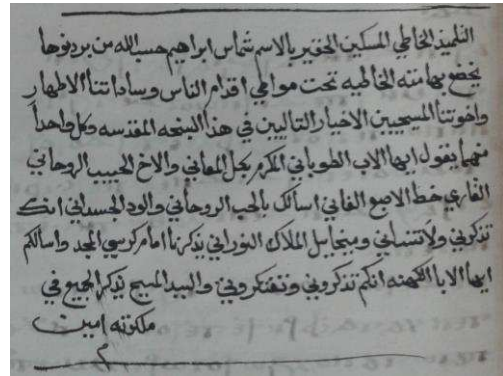 التلميذ الخاطي المسكين الحقير بالاسم شماس ابراهيم حسب الله من بردنوها
يخضع بهامته الخاطيه تحت مواطي اقدام الناس وساداتنا الاطهار
واخوتنا المسيحيين الاخيار التاليين في هذا النسخه المقدسه وكل واحداً
منهما يقول ايها الاب الطوباني المكرم بكل المعاني والاخ الحبيب الروحاني
القاري خط الاصبع الفاني اسالك بالحب الروحاني والود الجسداني انك
تذكرني ولا تنساني وميخاييل الملاك النوراني يذكرنا امام كرسي المجد واسالكم
ايها الابا الكهنه انكم تذكروني وتفتكروني والسيد المسيح يذكر الجميع في
ملكوته امين